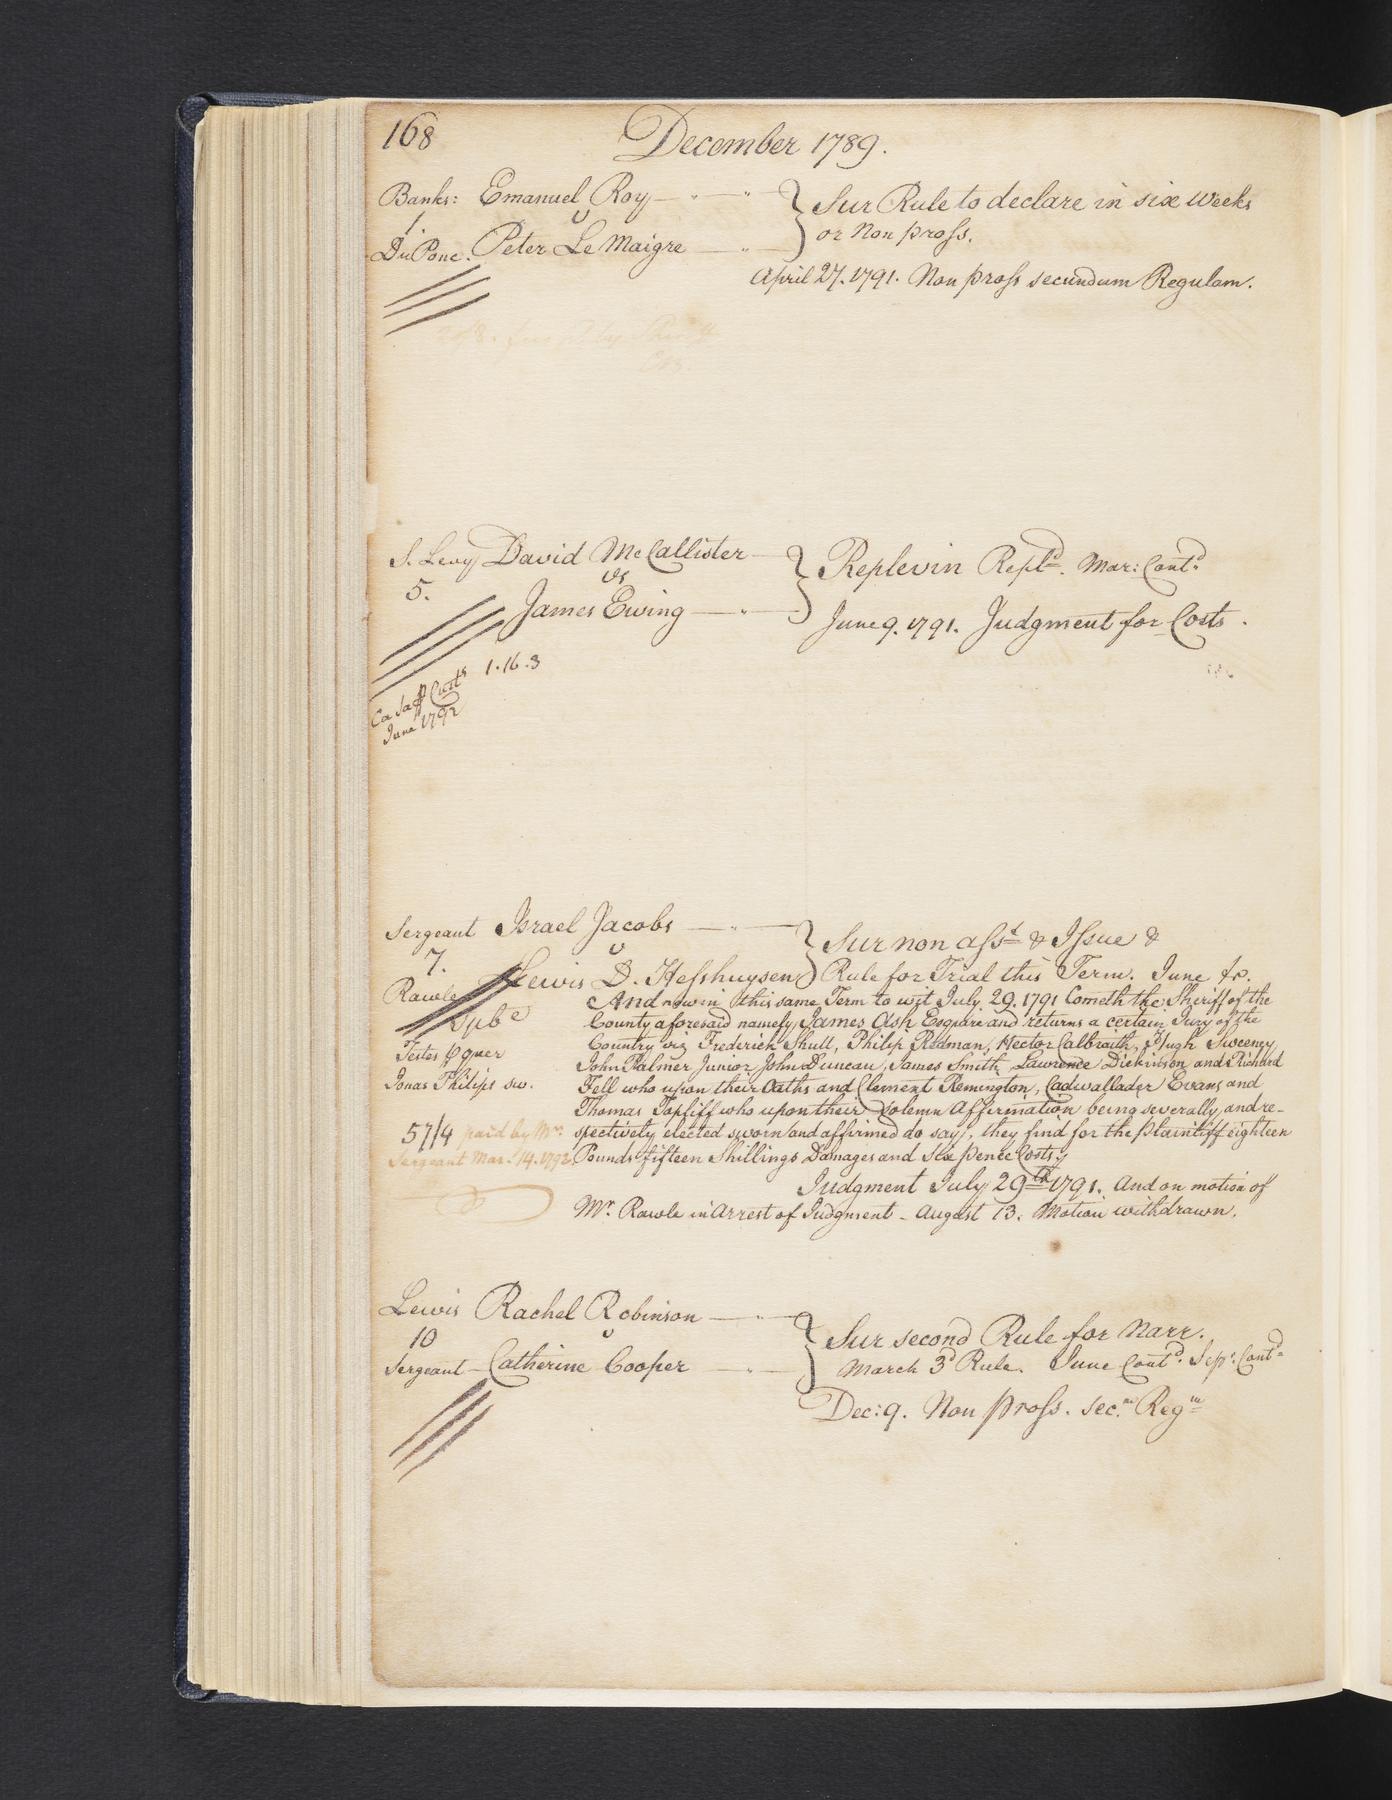 168 December 1789.
Banks: Emanuel Roy
1. v
DuPonc. Peter Le Maigre
Sur Rule to declare in six Weeks
or Non pross.
April 27. 1791. Non pross secundum Regulam.
S. Levy David McCallister
5. vs
James Ewing
Replevin Repld. Mar: Contd.
June 9. 1791. Judgment for Costs.
1.16.3
Ca Sa Costs
June 1792
Sergeant Israel Jacobs
7. v
Rawle Lewis D. Hesshuysen
Sur non asst & Issue &
Rule for Trial this Term. June
And now in this same Term to wit July 29. 1791 Cometh the Sheriff of the
County aforesaid namely James Ash Esquire and returns a certain Jury of the
Country viz Frederick Shull, Philip Redman, Hector Calbraith, Hugh Sweeney,
John Palmer Junior, John Duncan, James Smith, Lawrence Dickinson and Richard
Fell who upon their Oaths and Clement Remington, Cadwallader Evans and
Thomas Topliff who upon their Solemn Affirmation being severally and re-
spectively elected sworn and affirmed do say, they find for the plaintiff eighteen
Pounds fifteen Shillings Damages and Six pence Costs,
Judgment July 29th 1791. And on motion of
Mr. Rawle in Arrest of Judgment - August 13. Motion withdrawn.
Subs
Testes p quer
Jonas Philips sw.
57/4 paid by Mr.
Sergeant Mar. 14. 1792
Lewis Rachel Robinson
10 v
Sergeant Catherine Cooper
Sur second Rule for Narr.
March 3d Rule. June Contd. Sepr. Contd
Dec: 9. Non pross. sec.m Regm